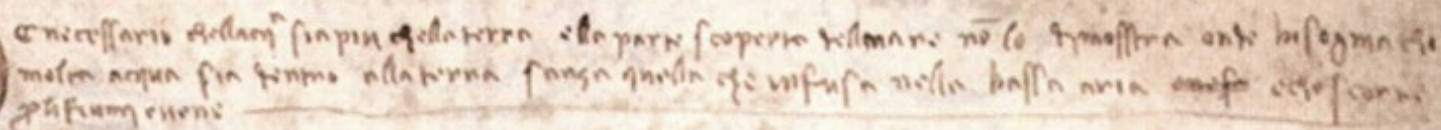 E necessario chellacq̃ sia piu chella terra ella parte scoperta dellmare nō lo dimosstra onde bisogna che
molta acqua sia dentro alla terra sanza quella che infusa nella bassa aria echesscorre
p̱ li fiumi evene